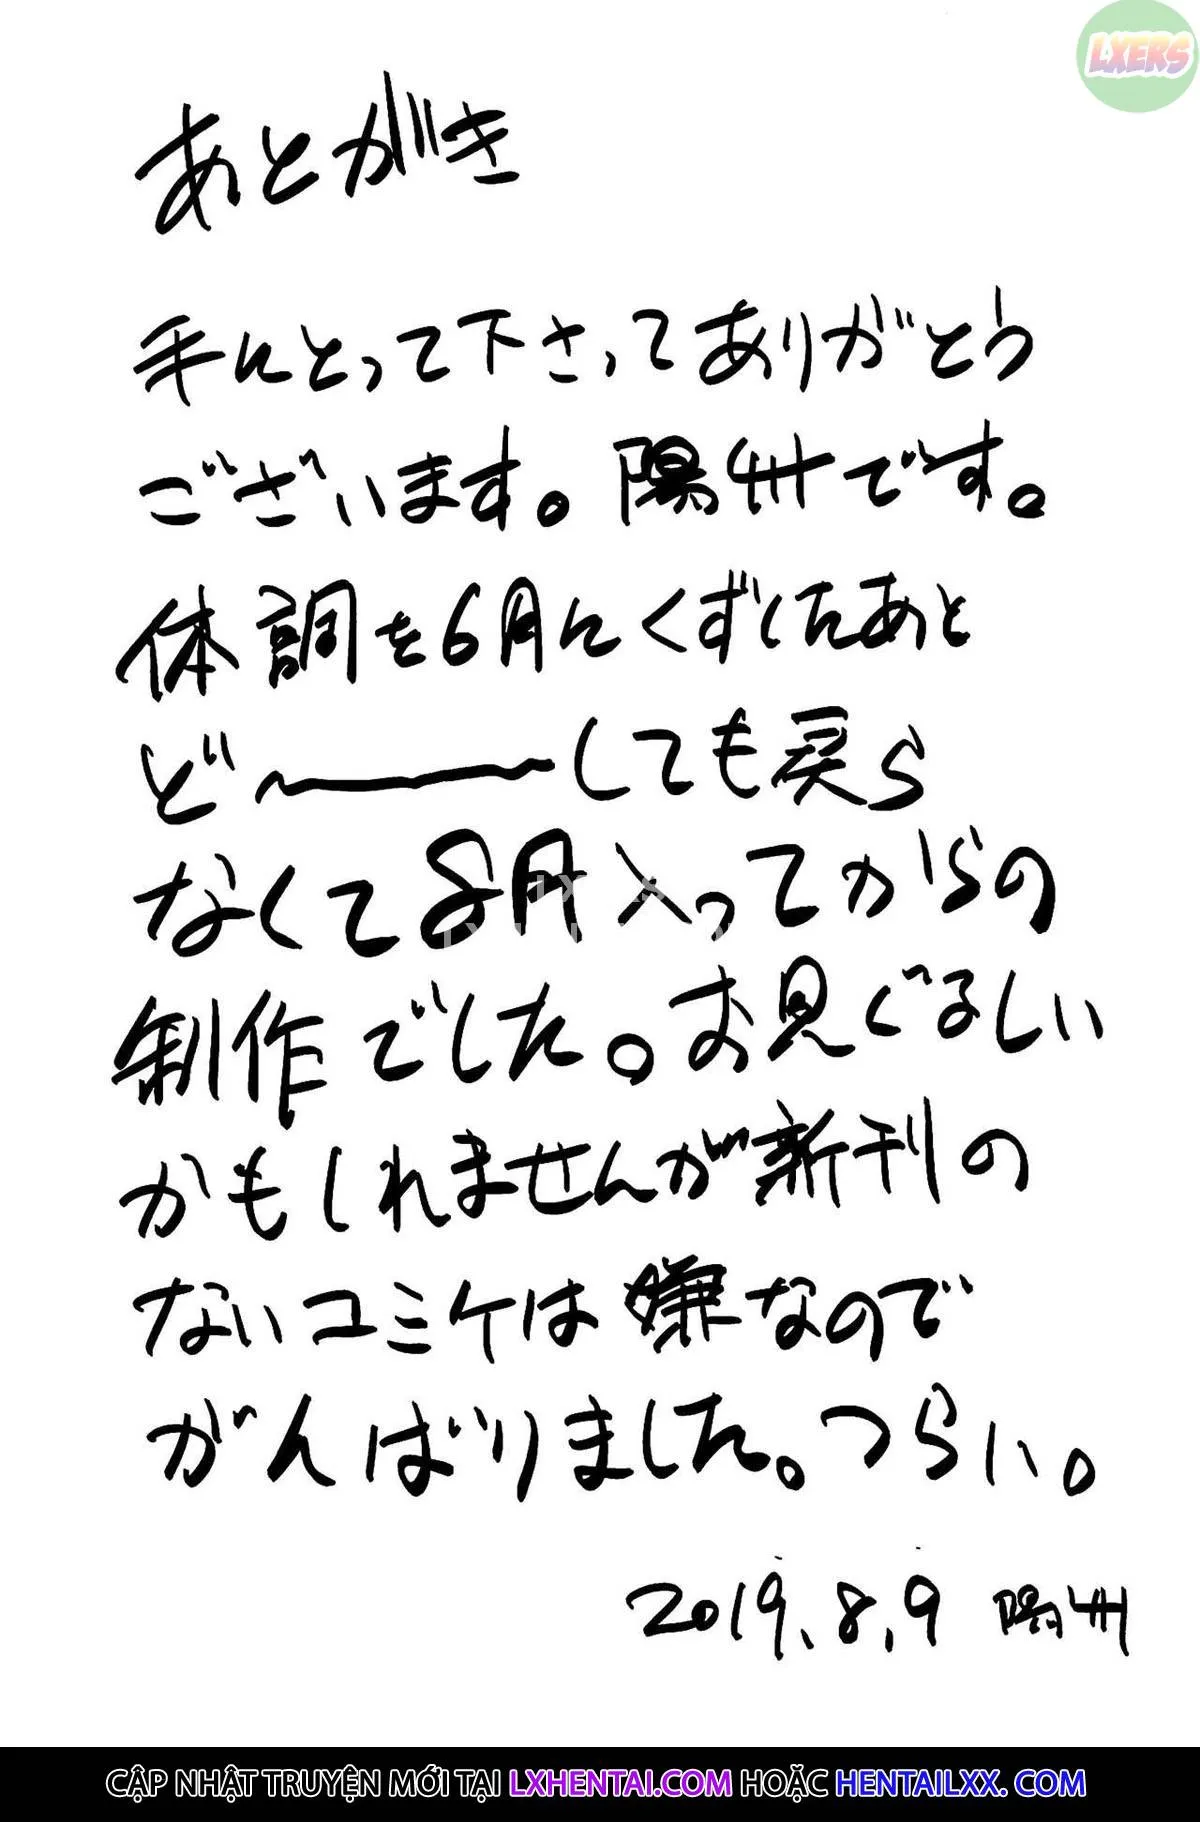 LXERS
あとがき
手にとって下さってありがとう
ございます。陽州です。
体調を6月にくずしたあと
ど〜しても戻ら
なくて8月入ってからの
制作でした。お見ぐるしい
かもしれませんが新刊の
ないコミケは嫌なので
がんばりました。つらい。
2019.8.9 陽州
CẬP NHẬT TRUYỆN MỚI TẠI LXHENTAI.COM HOẶC HENTAILXX.COM